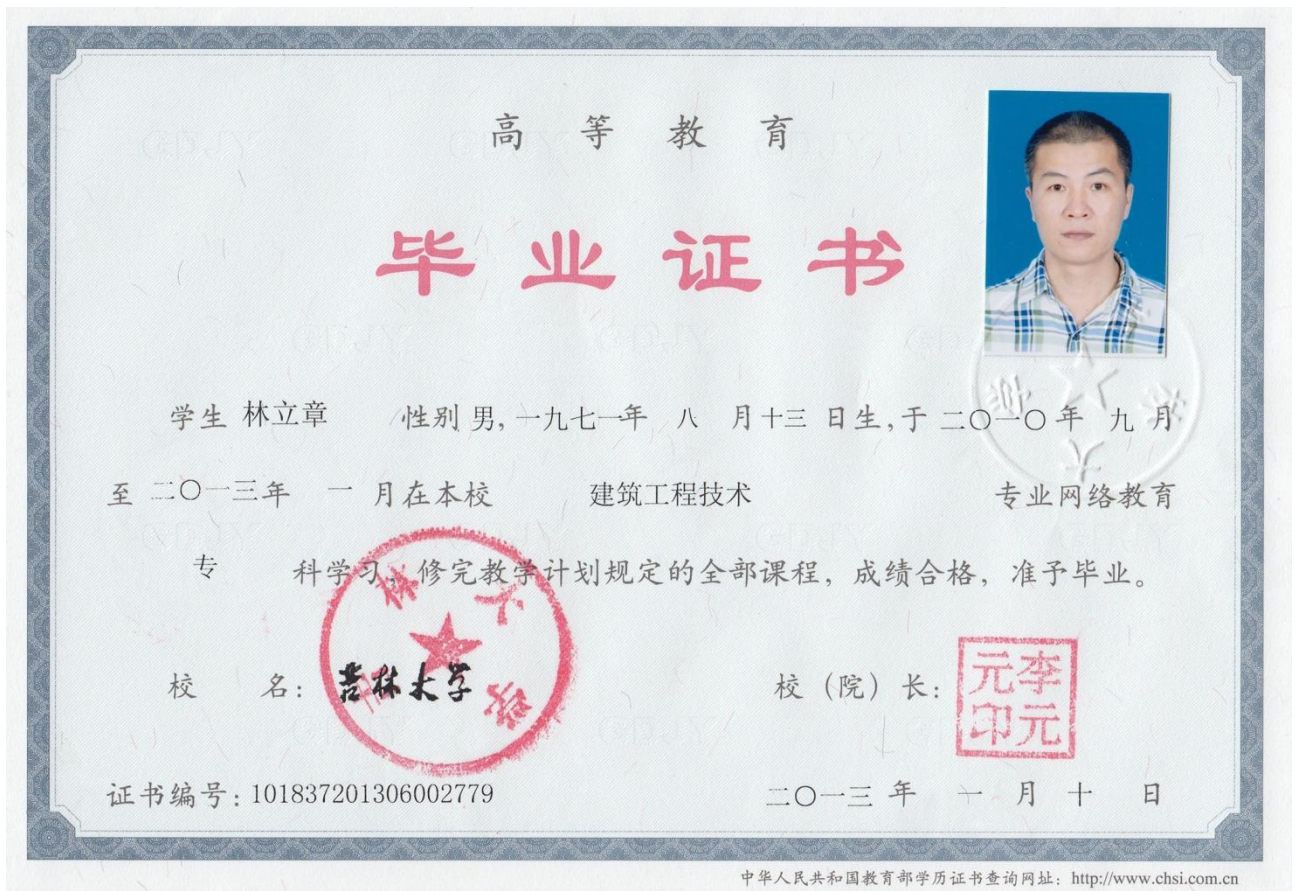 高等教育
毕业证书
学生 林立章 性别 男, 一九七一年 八 月十三 日生, 于 二〇一〇年 九 月
至 二〇一三年 一 月在本校 建筑工程技术 专业网络教育
专 科学习, 修完教学计划规定的全部课程, 成绩合格, 准予毕业。
校 名: 吉林大学
吉林大学
校 (院) 长:
李元元印
证书编号: 101837201306002779
二〇一三 年 一 月 十 日
中华人民共和国教育部学历证书查询网址: http://www.chsi.com.cn